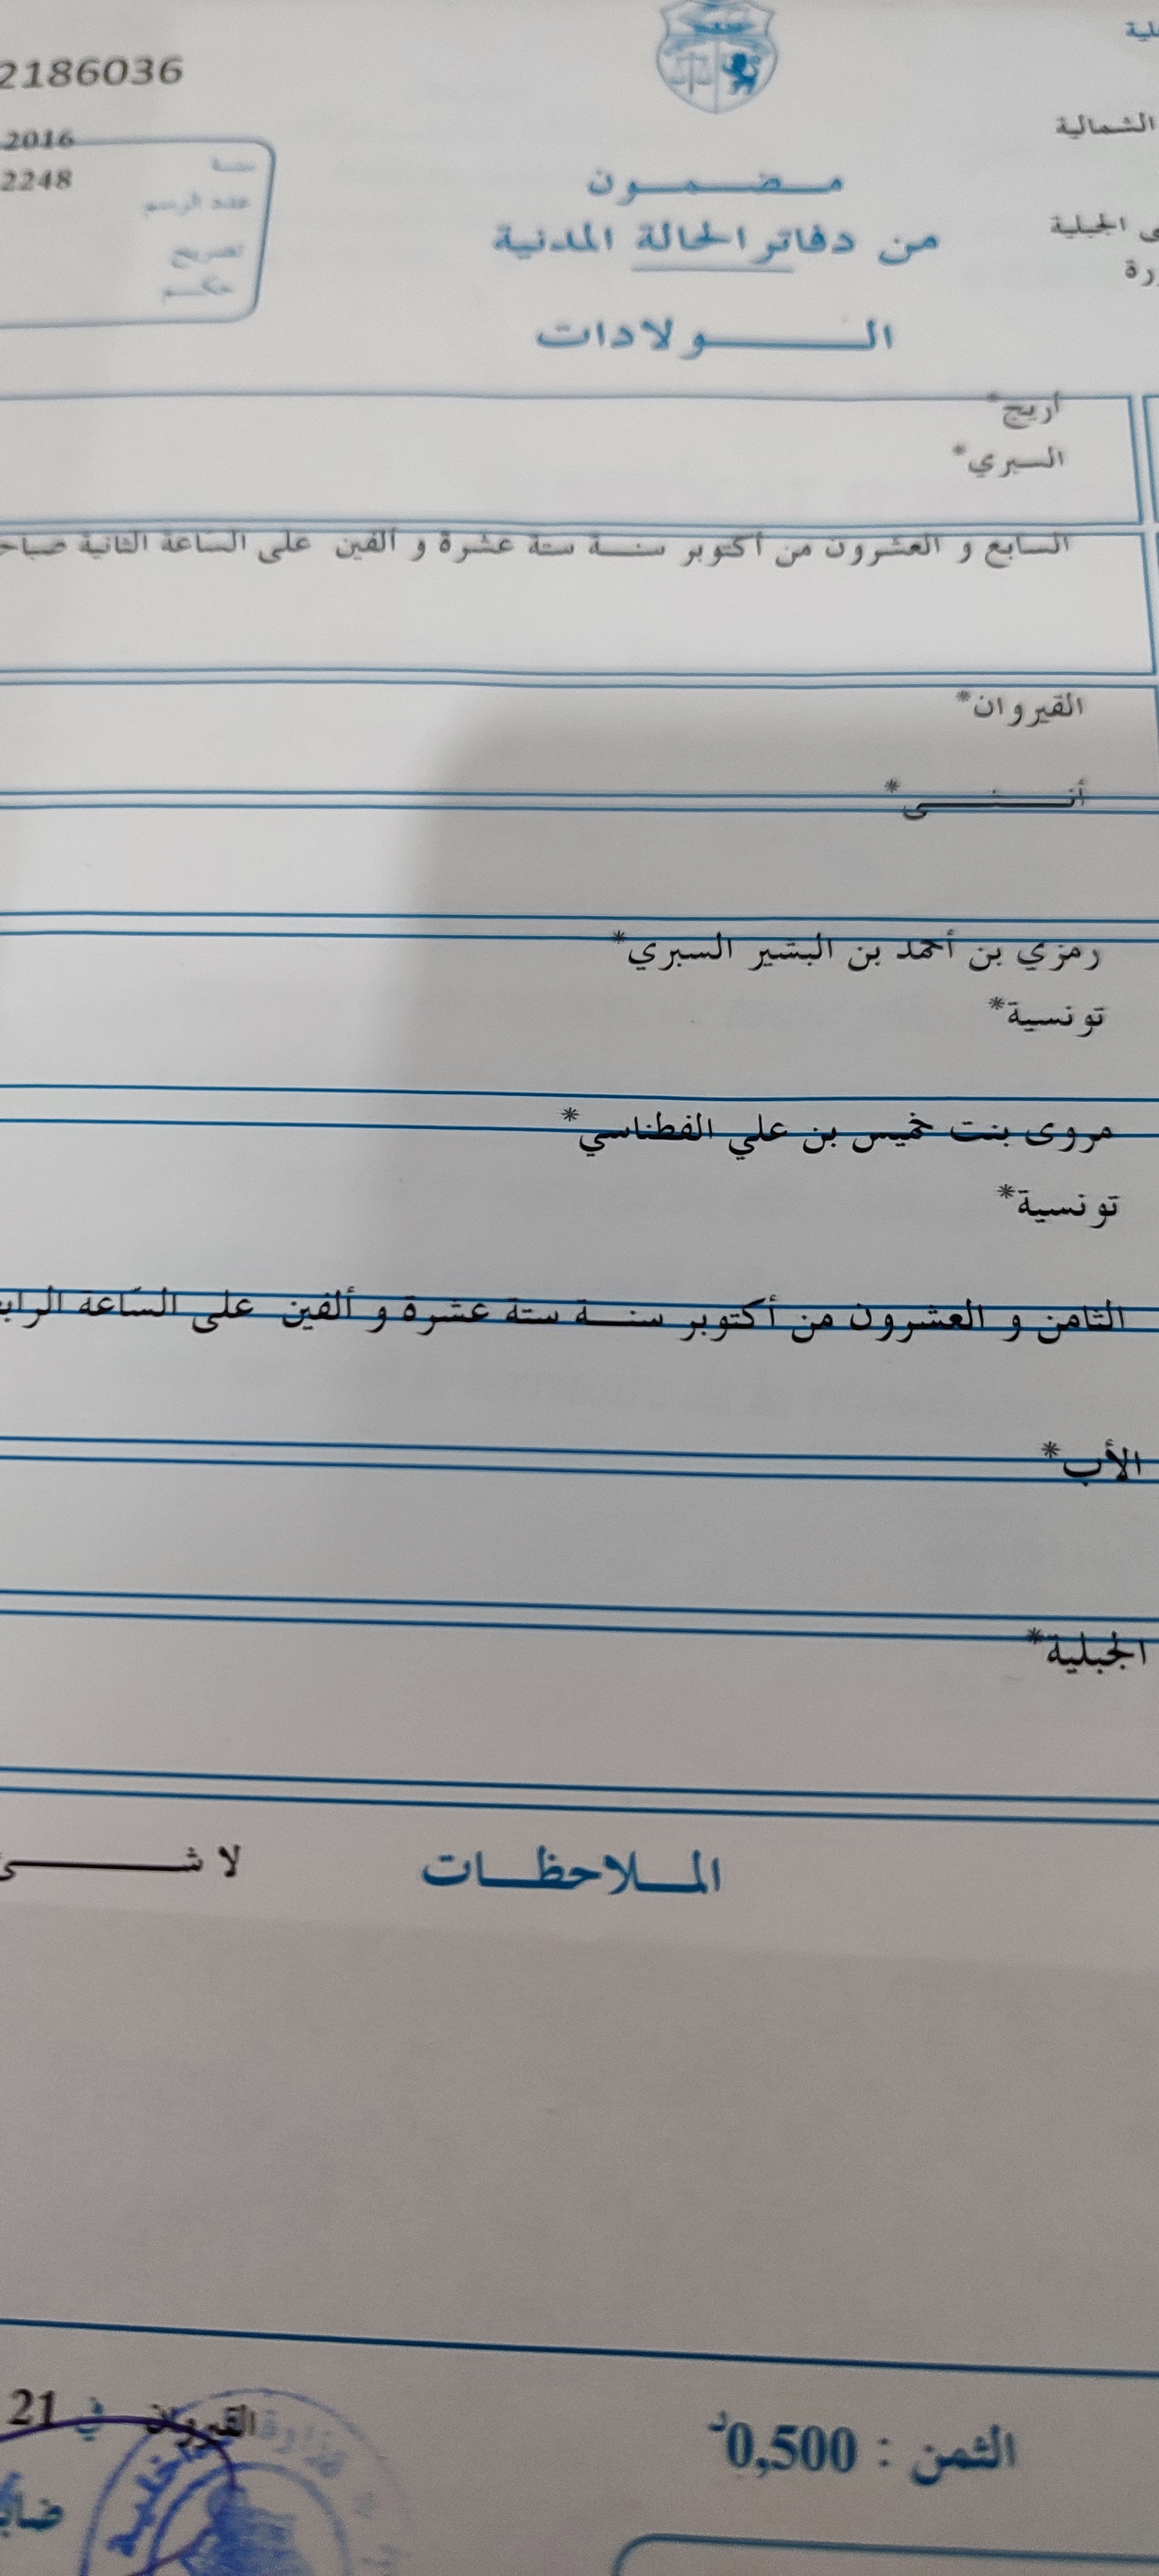 2186036
2016
2248
سنة
عدد الرسم
تصريح
حكم
الشمالية
الجبلية
مضمون
من دفاتر الحالة المدنية
الولادات
أريج*
السبري*
السابع و العشرون من أكتوبر سنة ستة عشرة و ألفين على الساعة الثانية
القيروان*
أنثى*
رمزي بن أحمد بن البشير السبري*
تونسية*
مروى بنت خميس بن علي الفطناسي*
تونسية*
الثامن و العشرون من أكتوبر سنة ستة عشرة و ألفين على السّاعة
الأب*
الجبلية*
الملاحظات
لا شئ
القيروان في 21
الثمن : 0,500د